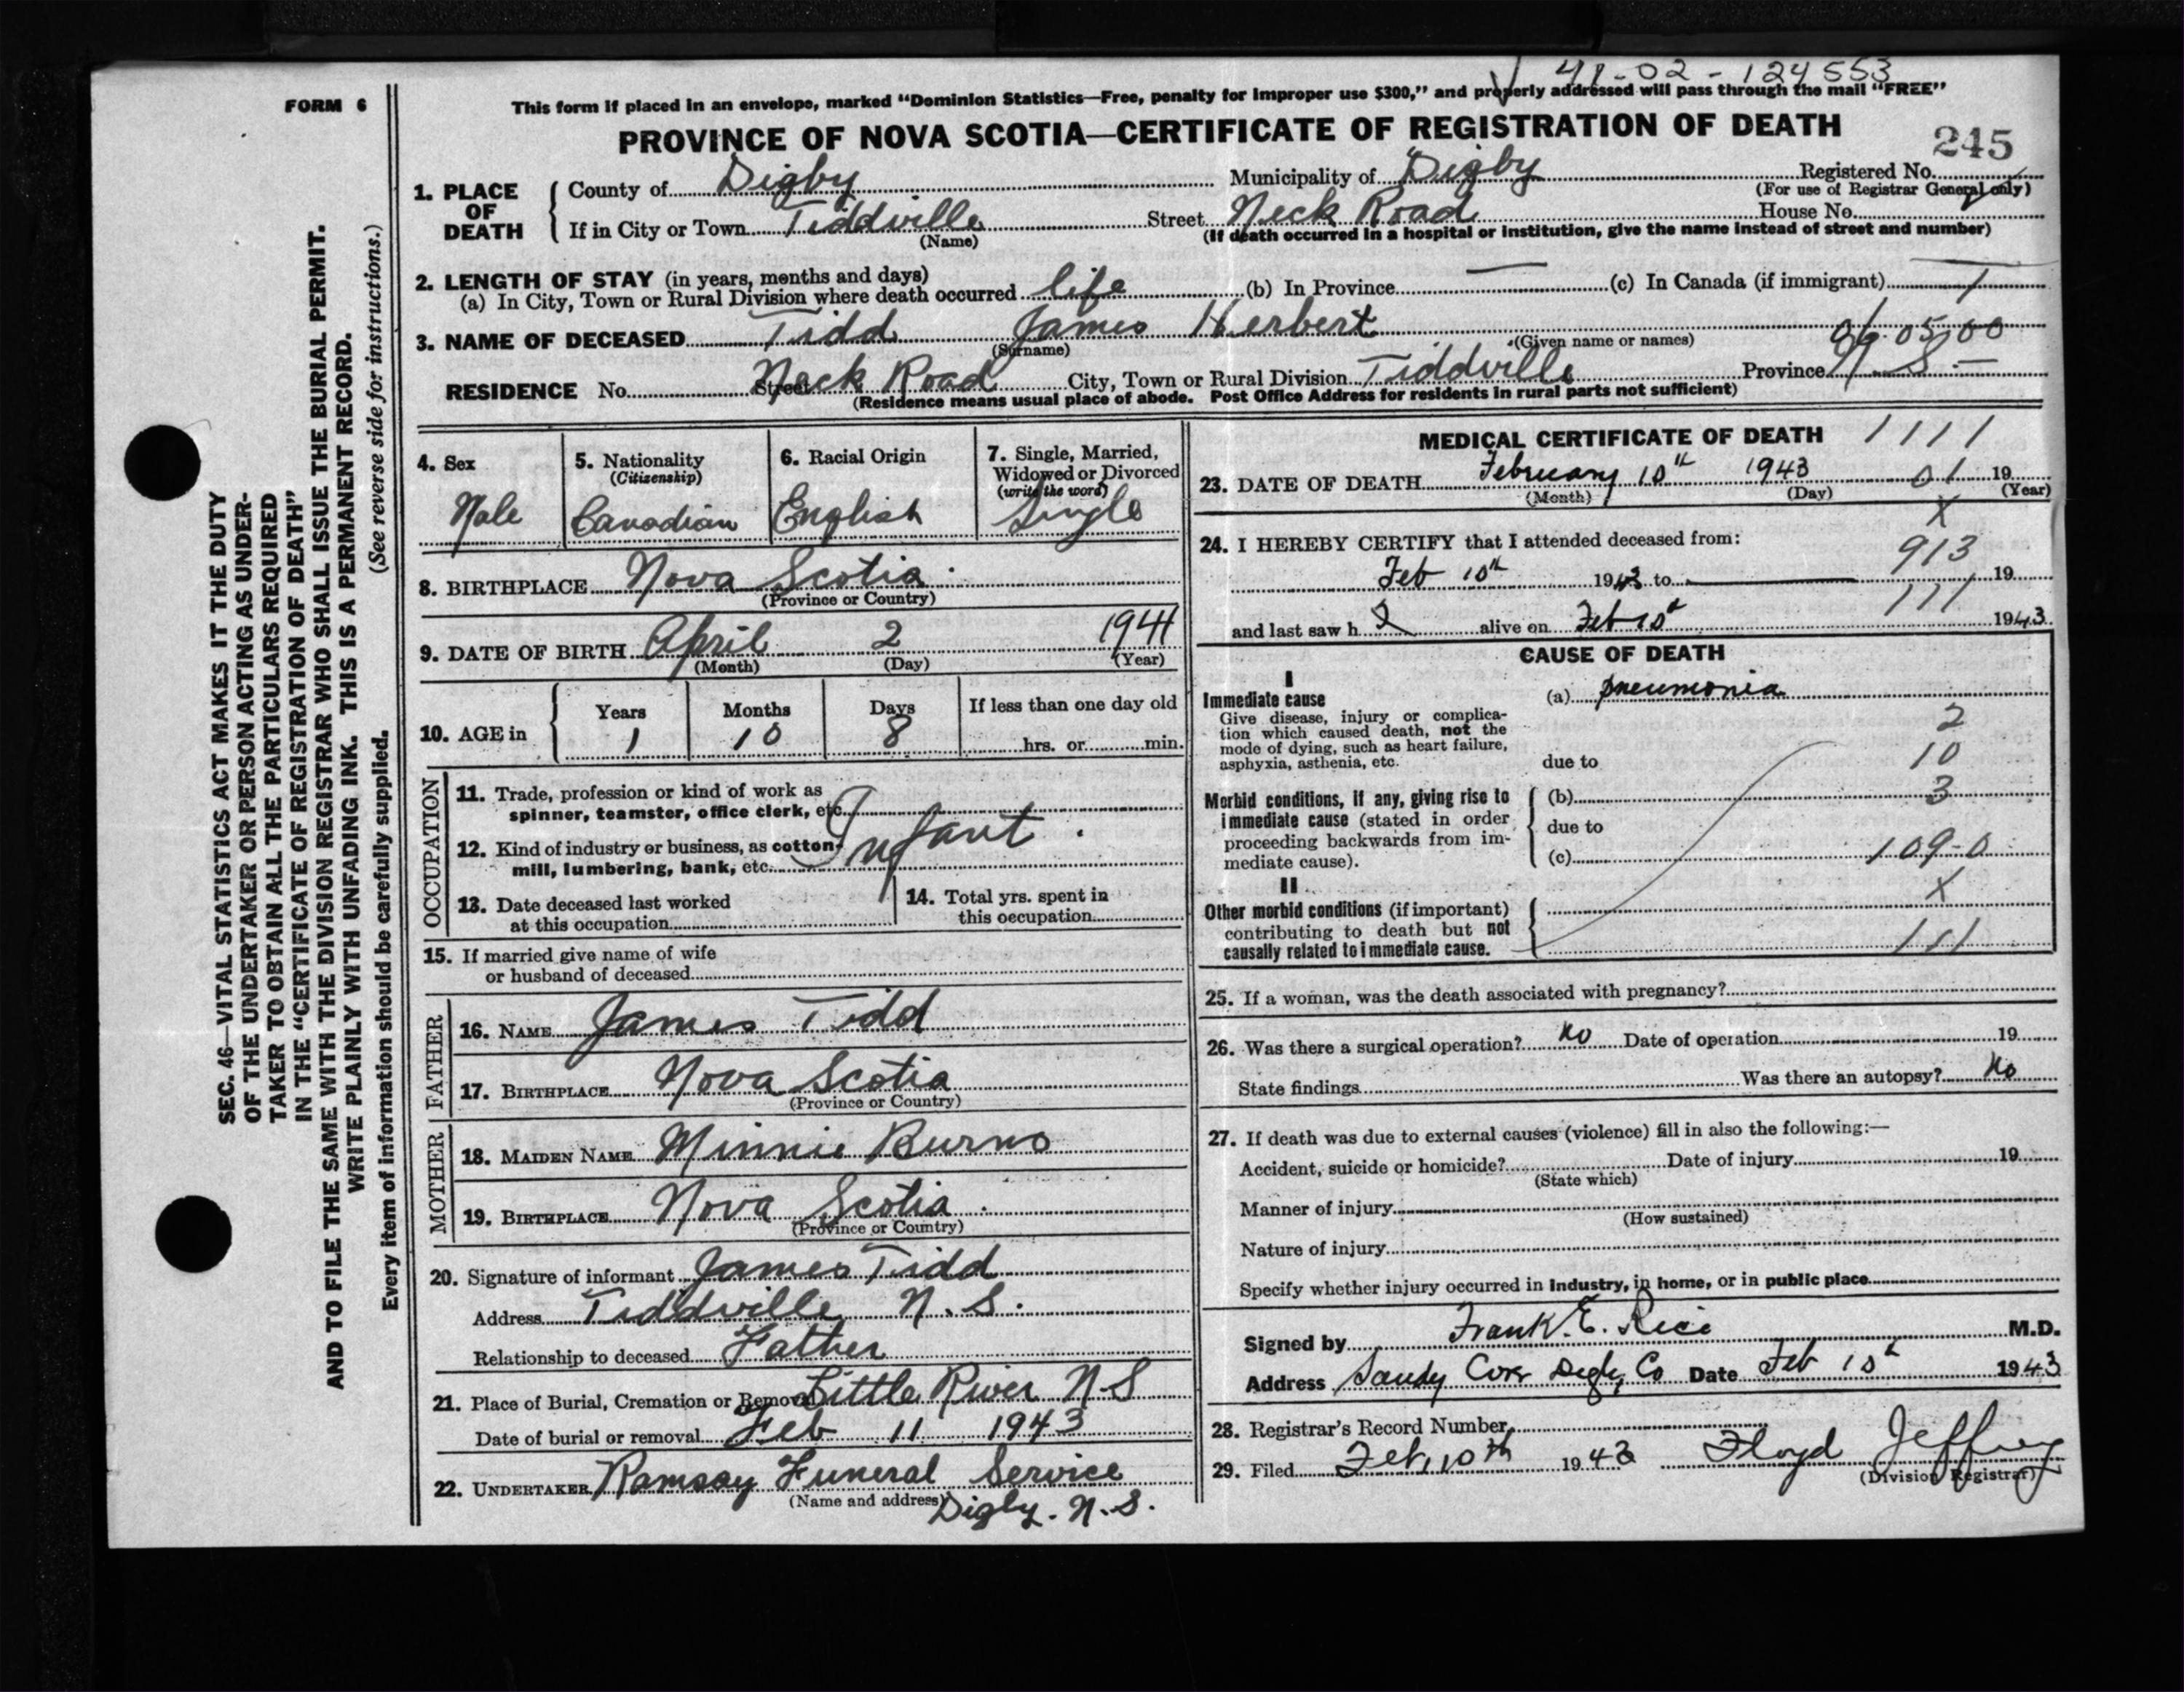 41-02-124553
FORM 6
This form if placed in an envelope, marked "Dominion Statistics—Free, penalty for improper use $300," and properly addressed will pass through the mail "FREE"
PROVINCE OF NOVA SCOTIA—CERTIFICATE OF REGISTRATION OF DEATH
245
1. PLACE OF DEATH { County of Digby Municipality of Digby Registered No.
(For use of Registrar General only)
If in City or Town Tiddville Street Neck Road House No.
(Name) (If death occurred in a hospital or institution, give the name instead of street and number)
2. LENGTH OF STAY (in years, months and days)
(a) In City, Town or Rural Division where death occurred life (b) In Province — (c) In Canada (if immigrant)
3. NAME OF DECEASED Tidd James Herbert
(Surname) (Given name or names) 06.05.00
RESIDENCE No. Street Neck Road City, Town or Rural Division Tiddville Province N.S.
(Residence means usual place of abode. Post Office Address for residents in rural parts not sufficient)
4. Sex
Male
5. Nationality
(Citizenship)
Canadian
6. Racial Origin
English
7. Single, Married,
Widowed or Divorced
(write the word)
Single
8. BIRTHPLACE Nova Scotia.
(Province or Country)
9. DATE OF BIRTH April 2 1941
(Month) (Day) (Year)
10. AGE in { Years Months Days If less than one day old
1 10 8 hrs. or min.
OCCUPATION
11. Trade, profession or kind of work as
spinner, teamster, office clerk, etc.
Infant.
12. Kind of industry or business, as cotton-
mill, lumbering, bank, etc.
13. Date deceased last worked
at this occupation
14. Total yrs. spent in
this occupation
15. If married give name of wife
or husband of deceased
FATHER
16. NAME James Tidd
17. BIRTHPLACE Nova Scotia
(Province or Country)
MOTHER
18. MAIDEN NAME Minnie Burns
19. BIRTHPLACE Nova Scotia.
(Province or Country)
20. Signature of informant James Tidd
Address Tiddville N.S.
Relationship to deceased Father
21. Place of Burial, Cremation or Removal Little River N-S
Date of burial or removal Feb 11 1943
22. UNDERTAKER Ramsay Funeral Service
(Name and address) Digby. N.S.
MEDICAL CERTIFICATE OF DEATH 1111
23. DATE OF DEATH February 10th 1943 01 19
(Month) (Day) (Year)
X
24. I HEREBY CERTIFY that I attended deceased from:
913
Feb 10th 1943 to — 19
111
and last saw h alive on Feb 10th 1943
CAUSE OF DEATH
I
Immediate cause (a) pneumonia
Give disease, injury or complica-
tion which caused death, not the
mode of dying, such as heart failure,
asphyxia, asthenia, etc. due to
2
10
3
Morbid conditions, if any, giving rise to
immediate cause (stated in order
proceeding backwards from im-
mediate cause).
(b)
due to
(c) 109-0
II
X
Other morbid conditions (if important)
contributing to death but not
causally related to immediate cause.
111
25. If a woman, was the death associated with pregnancy?
26. Was there a surgical operation? No Date of operation 19
State findings Was there an autopsy? No
27. If death was due to external causes (violence) fill in also the following:—
Accident, suicide or homicide? Date of injury 19
(State which)
Manner of injury
(How sustained)
Nature of injury
Specify whether injury occurred in industry, in home, or in public place
Signed by Frank. E. Rice M.D.
Address Sandy Cove Digby Co Date Feb 10th 1943
28. Registrar's Record Number
29. Filed Feb, 10th 1943 Floyd Jeffrey
(Division Registrar)
SEC. 46—VITAL STATISTICS ACT MAKES IT THE DUTY
OF THE UNDERTAKER OR PERSON ACTING AS UNDER-
TAKER TO OBTAIN ALL THE PARTICULARS REQUIRED
IN THE "CERTIFICATE OF REGISTRATION OF DEATH"
AND TO FILE THE SAME WITH THE DIVISION REGISTRAR WHO SHALL ISSUE THE BURIAL PERMIT.
WRITE PLAINLY WITH UNFADING INK. THIS IS A PERMANENT RECORD.
(See reverse side for instructions.)
Every item of information should be carefully supplied.